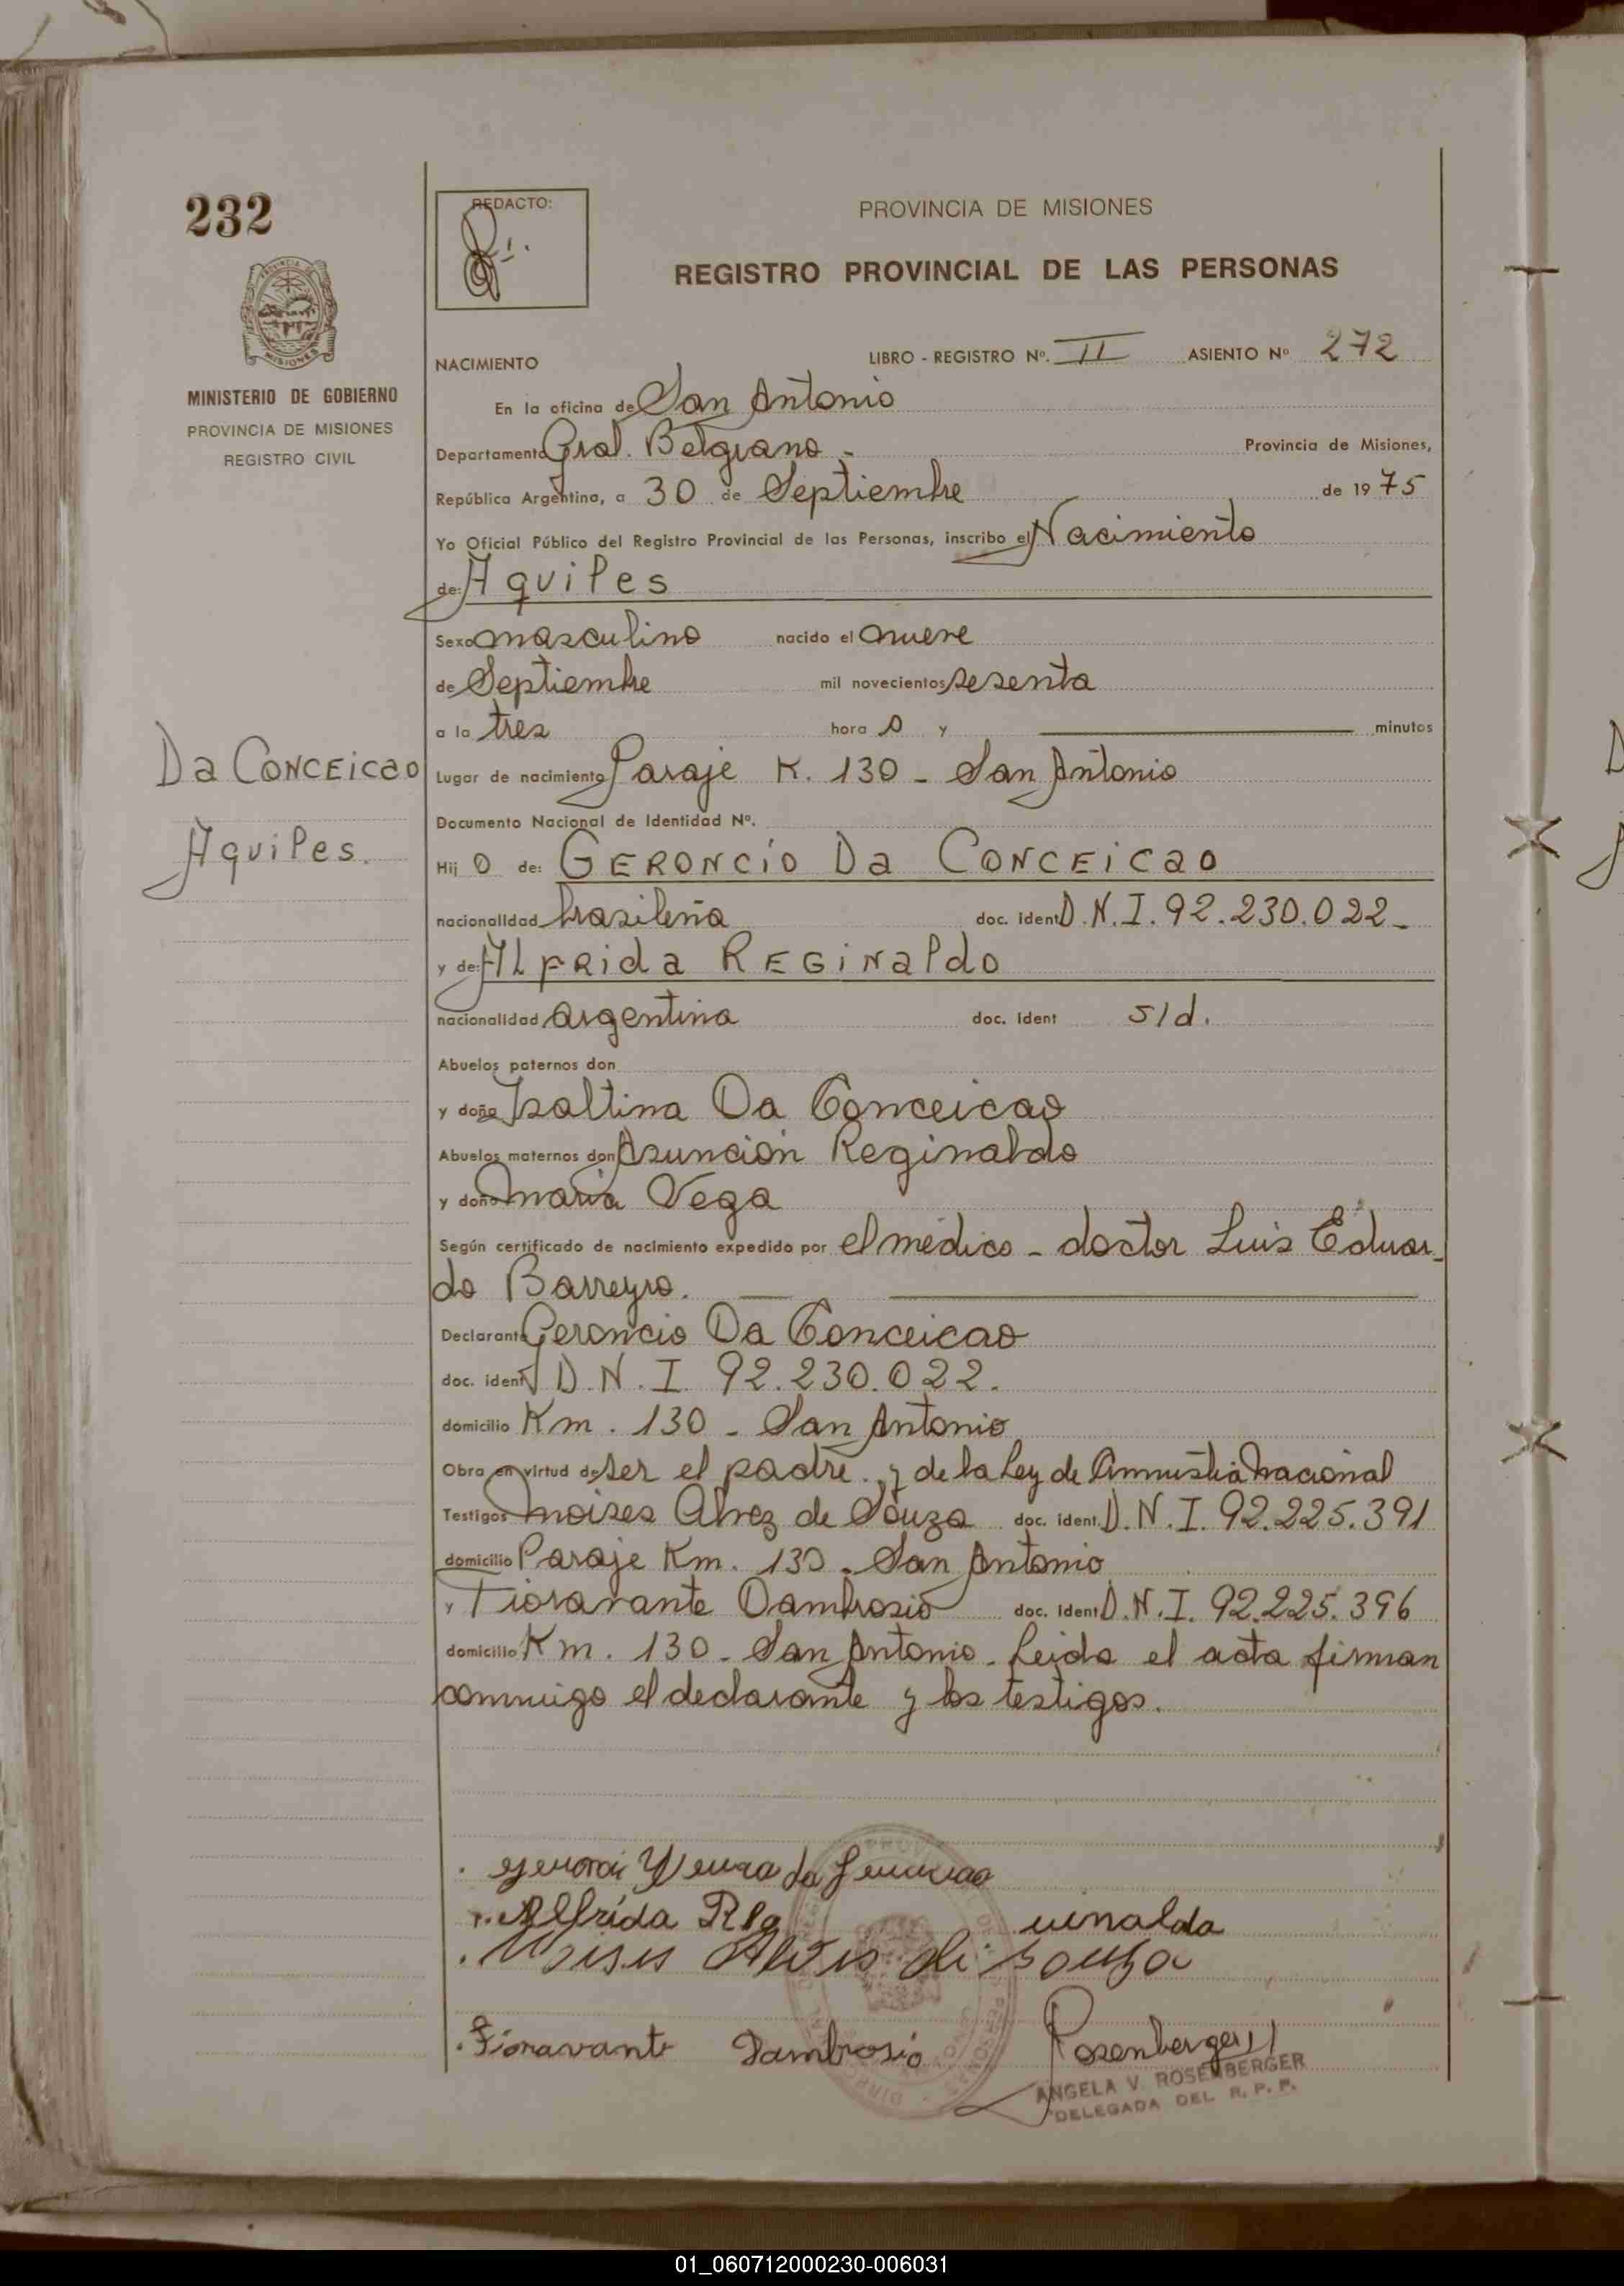 232
MINISTERIO DE GOBIERNO
PROVINCIA DE MISIONES
REGISTRO CIVIL
Da CONCEICAO
Aquiles.
REDACTO:
PROVINCIA DE MISIONES
REGISTRO PROVINCIAL DE LAS PERSONAS
NACIMIENTO LIBRO - REGISTRO Nº. II ASIENTO Nº 272
En la oficina de San Antonio
Departamento Gral. Belgrano - Provincia de Misiones,
República Argentina, a 30 de Septiembre de 1975
Yo Oficial Público del Registro Provincial de las Personas, inscribo el Nacimiento
de: Aquiles
Sexo masculino nacido el nueve
de Septiembre mil novecientos sesenta
a la tres hora s y minutos
Lugar de nacimiento Paraje K. 130 - San Antonio
Documento Nacional de Identidad Nº.
Hij o de: GERONCIO Da CONCEICAO
nacionalidad brasileña doc. ident D.N.I. 92.230.022-
y de: ALFRIDA REGINALDO
nacionalidad argentina doc. ident s/d.
Abuelos paternos don
y doña Isaltina Da Conceicao
Abuelos maternos don Asunción Reginaldo
y doña Maria Vega
Según certificado de nacimiento expedido por el médico - doctor Luis Eduar-
do Barreyro.
Declarante Geroncio Da Conceicao
doc. ident D.N.I. 92.230.022.
domicilio Km. 130 - San Antonio
Obra en virtud de ser el padre. y de la Ley de Amnistia nacional
Testigos Moises Alvez de Souza doc. ident. D.N.I. 92.225.391
domicilio Paraje Km. 130 - San Antonio
y Fioravante Dambrosio doc. ident D.N.I. 92.225.396
domicilio Km. 130 - San Antonio - Leida el acta firman
conmigo el declarante y los testigos.
Alfrida Reg inalda
Moises Alves de Souza
Fioravante Dambrosio Rosenberger
ANGELA V. ROSENBERGER
DELEGADA DEL R. P. P.
01_060712000230-006031